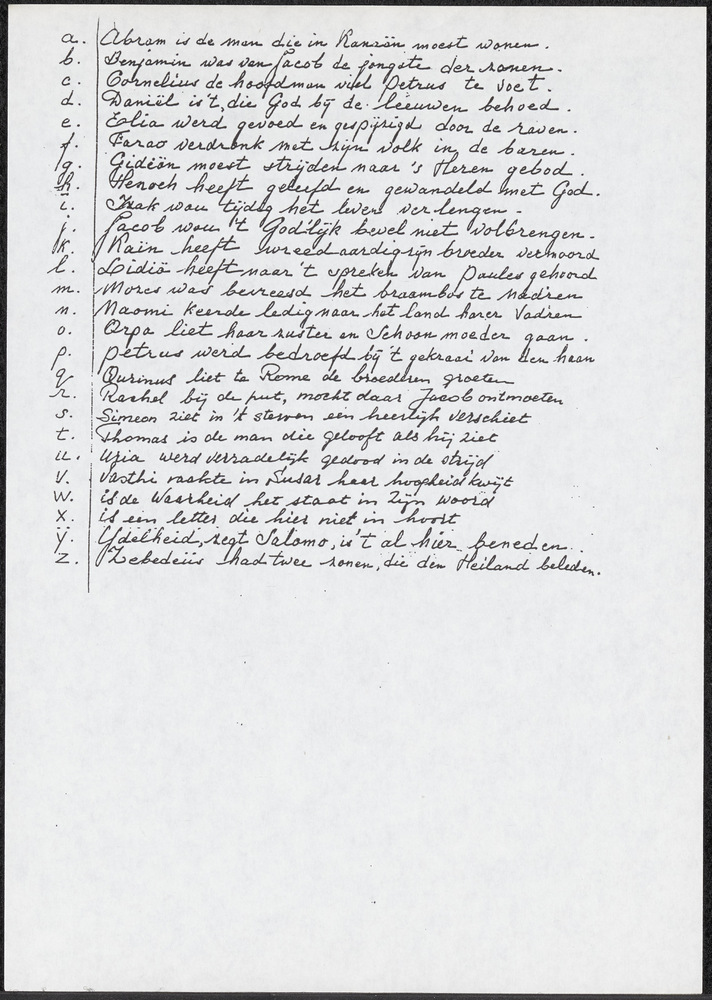 a. Abram is de man die in Kanaän moest wonen.
b. Benjamin was van Jacob de jongste der zonen.
c. Cornelius de hoofdman viel Petrus te voet.
d. Daniël is't, die God bij de leeuwen behoed.
e. Elia werd gevoed en gespijzigd door de raven.
f. Farao verdronk met zijn volk in de baren.
g. Gideön moest strijden naar 's Heren gebod.
h. Henoch heeft geleefd en gewandeld met God.
i. Izak wou tijdig het leven verlengen.
j. Jacob wou 't God'lijk bevel niet volbrengen.
k. Kain heeft wreedaardig zijn broeder vermoord
l. Lidiä heeft naar 't spreken van Paulus gehoord
m. Mozes was bevreesd het braambos te nadren
n. Naomi keerde ledig naar het land harer Vadren
o. Orpa liet haar zuster en Schoonmoeder gaan.
p. Petrus werd bedroefd bij 't gekraai van den haan
q Qurinus liet te Rome de broederen groeten
r. Rachel bij de put, mocht daar Jacob ontmoeten
s. Simeon ziet in 't sterven een heerlijk verschiet
t. Thomas is de man die gelooft als hij ziet
u. Uria werd verradelijk gedood in de strijd
v. Vasthi raakte in Susar haar hoogheid kwijt
w. is de Waarheid het staat in Zijn woord
x. is een letter die hier niet in hoort
ÿ. Ydelheid, zegt Salomo, is 't al hier beneden.
z. Zebedeüs had twee zonen, die den Heiland beleden.